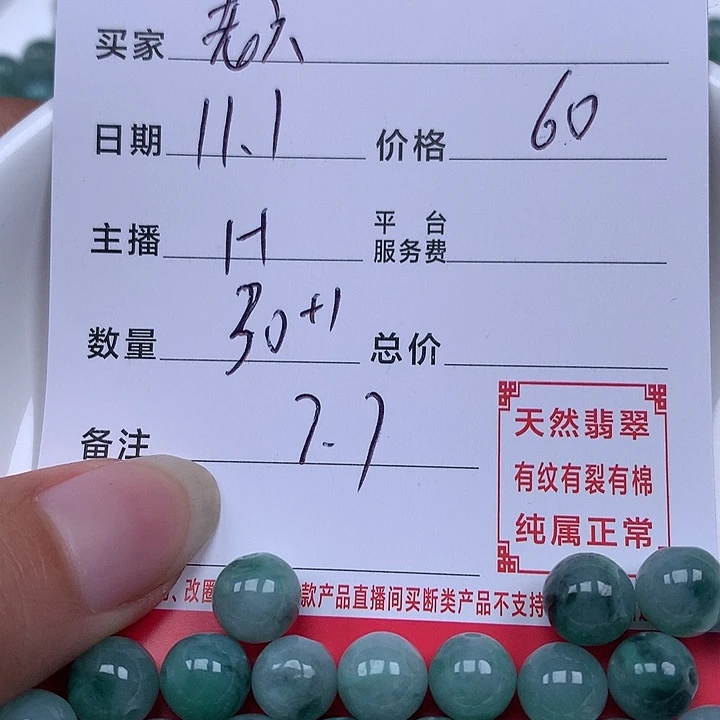 买家 老六
日期 11.1 价格 60
主播 H 平台服务费
数量 30+1 总价
备注 7.7
天然翡翠
有纹有裂有棉
纯属正常
、改圈 款产品直播间买断类产品不支持